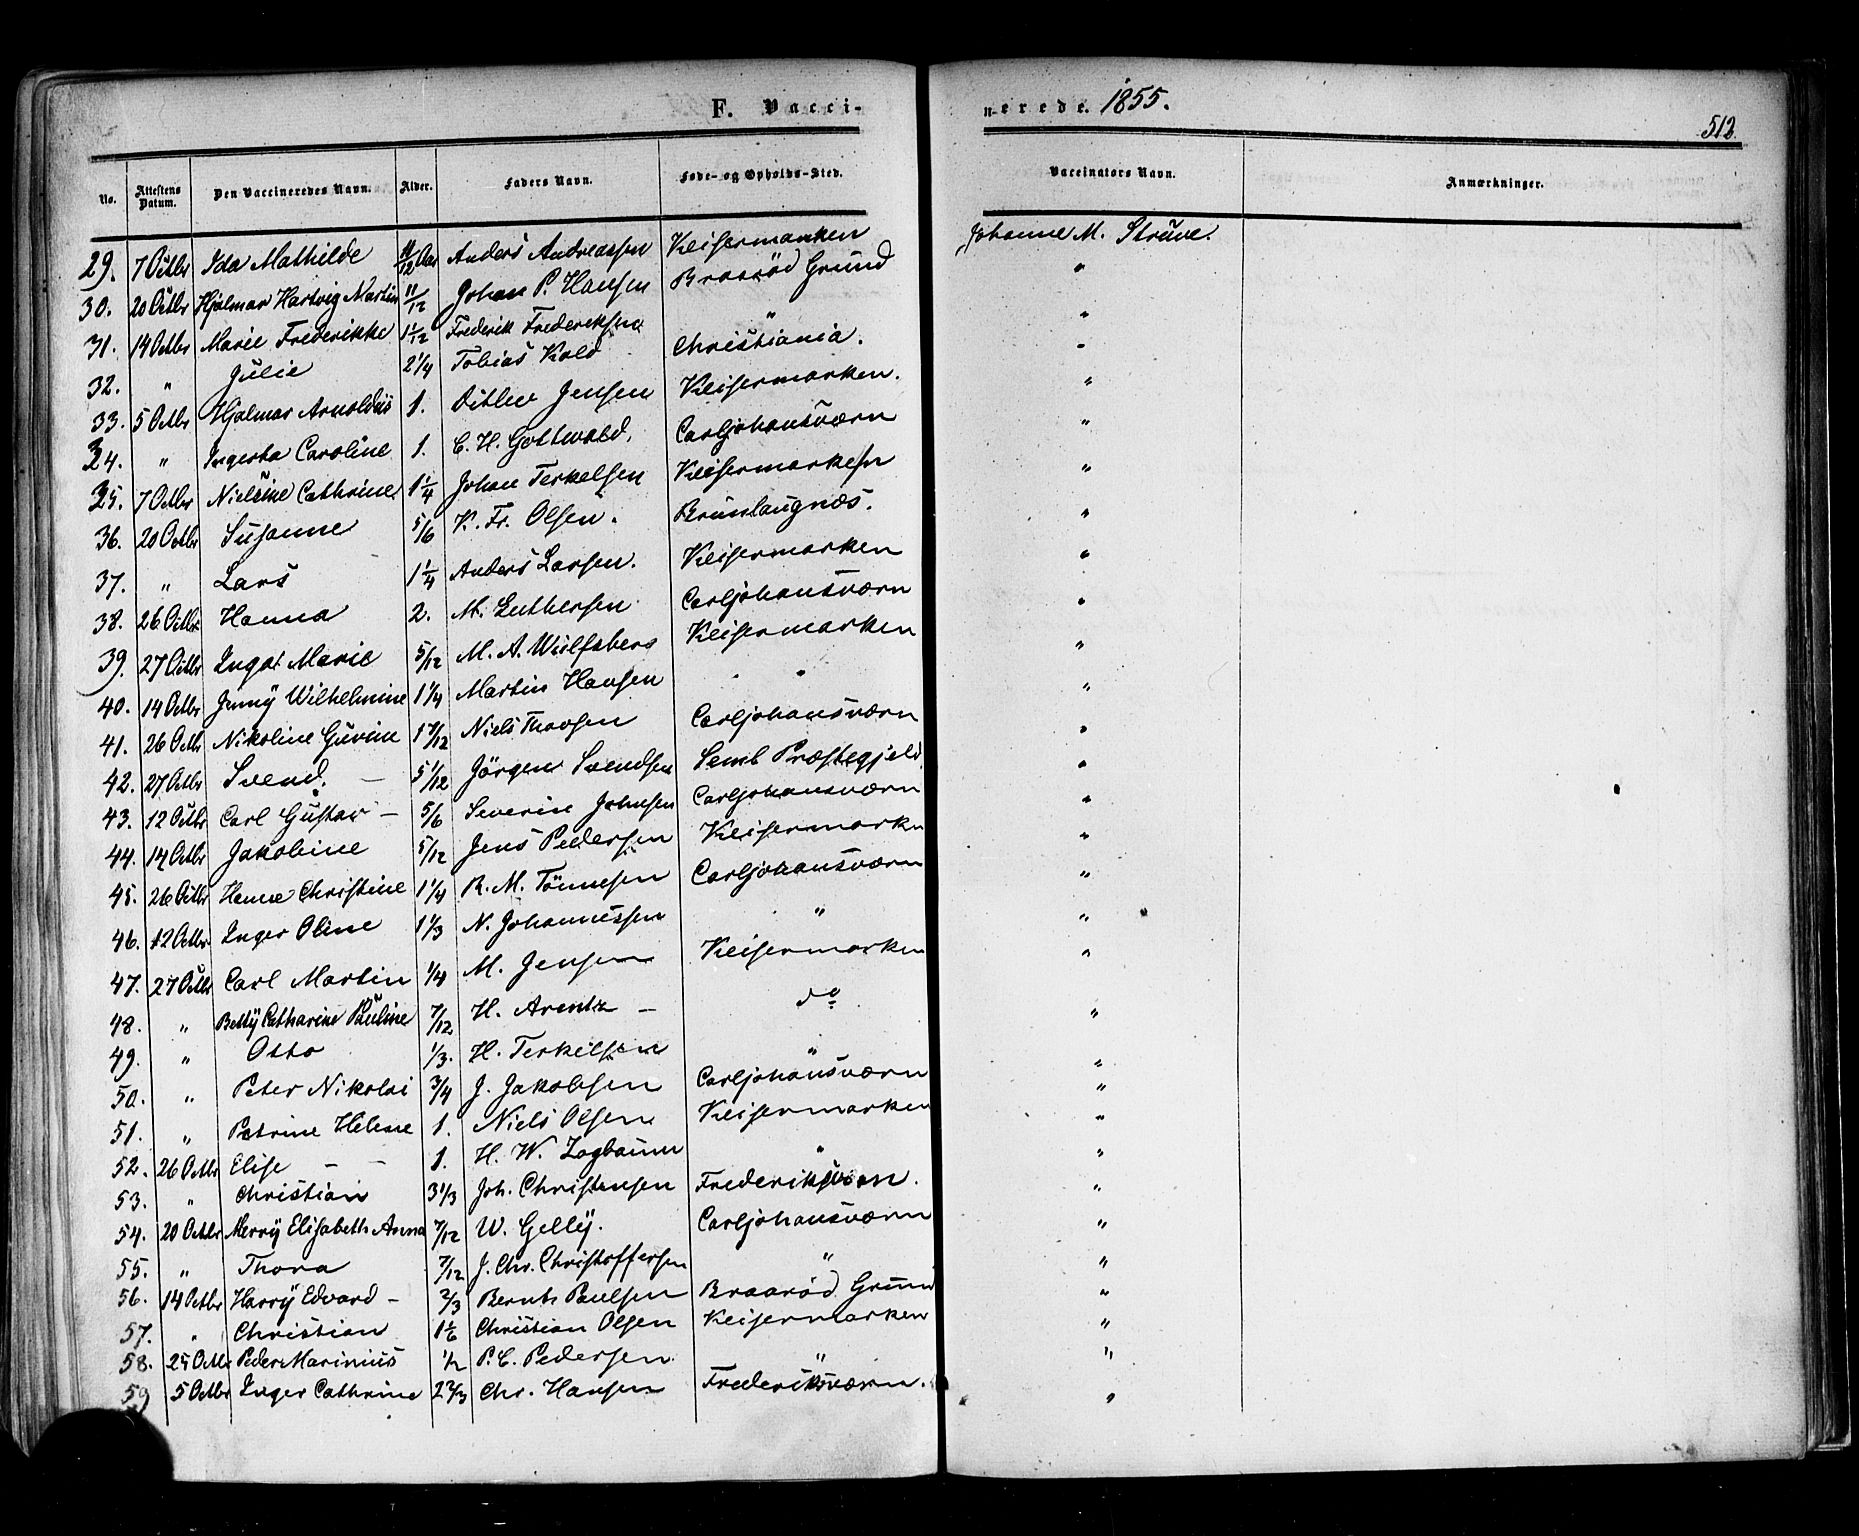 F. Vacci-
nerede. 1855.
512.
No. Attestens Datum. Den Vaccineredes Navn. Alder. Faders Navn. Føde- og Opholds-Sted. Vaccinators Navn. Anmærkninger.
29. 7 Octbr Ida Mathilde 11/12 Aar Anders Andreassen Keisermarken Johanne M. Struve.
30. 20 Octbr Hjalmar Hartvig Martin 11/12 Johan P. Hansen Braarød Grund "
31. 14 Octbr Marie Frederikke 1 1/12 Frederik Frederiksen " "
32. " Julie 2 1/4 Tobias Kold Christiania. "
33. 5 Octbr Hjalmar Arnoldus 1. Ditlev Jensen Keisermarken. "
34. " Ingerta Caroline 1. C. H. Gottwald. Carljohansværn "
35. 7 Octbr Nielsine Cathrine 1 1/4 Johan Terkelsen Keisermarken "
36. 20 Octbr Susanne 5/6 K. Fr. Olsen. Brunlaugnæs. "
37. " Lars 1 1/4 Anders Larsen. Keisermarken "
38. 26 Octbr Hanna 2. M. Luthersen Carljohansværn "
39. 27 Octbr Ingat Marie 5/12 M. A. Wulfsberg Keisermarken "
40. 14 Octbr Jenny Wilhelmine 1 1/4 Martin Hansen " "
41. 26 Octbr Nikoline Guvine 1 7/12 Niels Thorsen Carljohansværn "
42. 27 Octbr Svend. — 5 1/12 Jørgen Svendsen Semb Præstegjeld "
43. 12 Octbr Carl Gustav — 5/6 Severin Johnsen Carljohansværn "
44. 14 Octbr Jakobine 5/12 Jens Pedersen Keisermarken "
45. 26 Octbr Hanne Christine 1 1/4 R. M. Tønnesen Carljohansværn "
46. 12 Octbr Inger Oline 1 1/3 N. Johannessen " "
47. 27 Octbr Carl Martin 1/4 M. Jensen Keisermarken "
48. " Betty Catharine Pauline 7/12 H. Arentz — do "
49. " Otto 1/3. H. Terkilsen " "
50. " Peter Nikolai 3/4 J. Jakobsen Carljohansværn "
51. " Petrine Helene 1. Niels Olsen Keisermarken "
52. 26 Octbr Elise — — 1. H. W. Zogbaum " "
53. " Christian 3 1/3 Joh. Christensen Frederiksværn. "
54. 20 Octbr Merry Elisabeth Anna 7/12 W. Gelly. Carljohansværn "
55. " Thora 7/12 J. Chr. Christoffersen " "
56. 14 Octbr Harry Edvard — 2/3 Bernts Paulsen Braarød Grund "
57. " Christian 1 1/6 Christian Olsen Keisermarken "
58. 25 Octbr Peder Marinius 1/2 P. C. Pedersen " "
59 5 Octbr Inger Cathrine 2 2/3 Chr. Hansen Frederiksværn. "